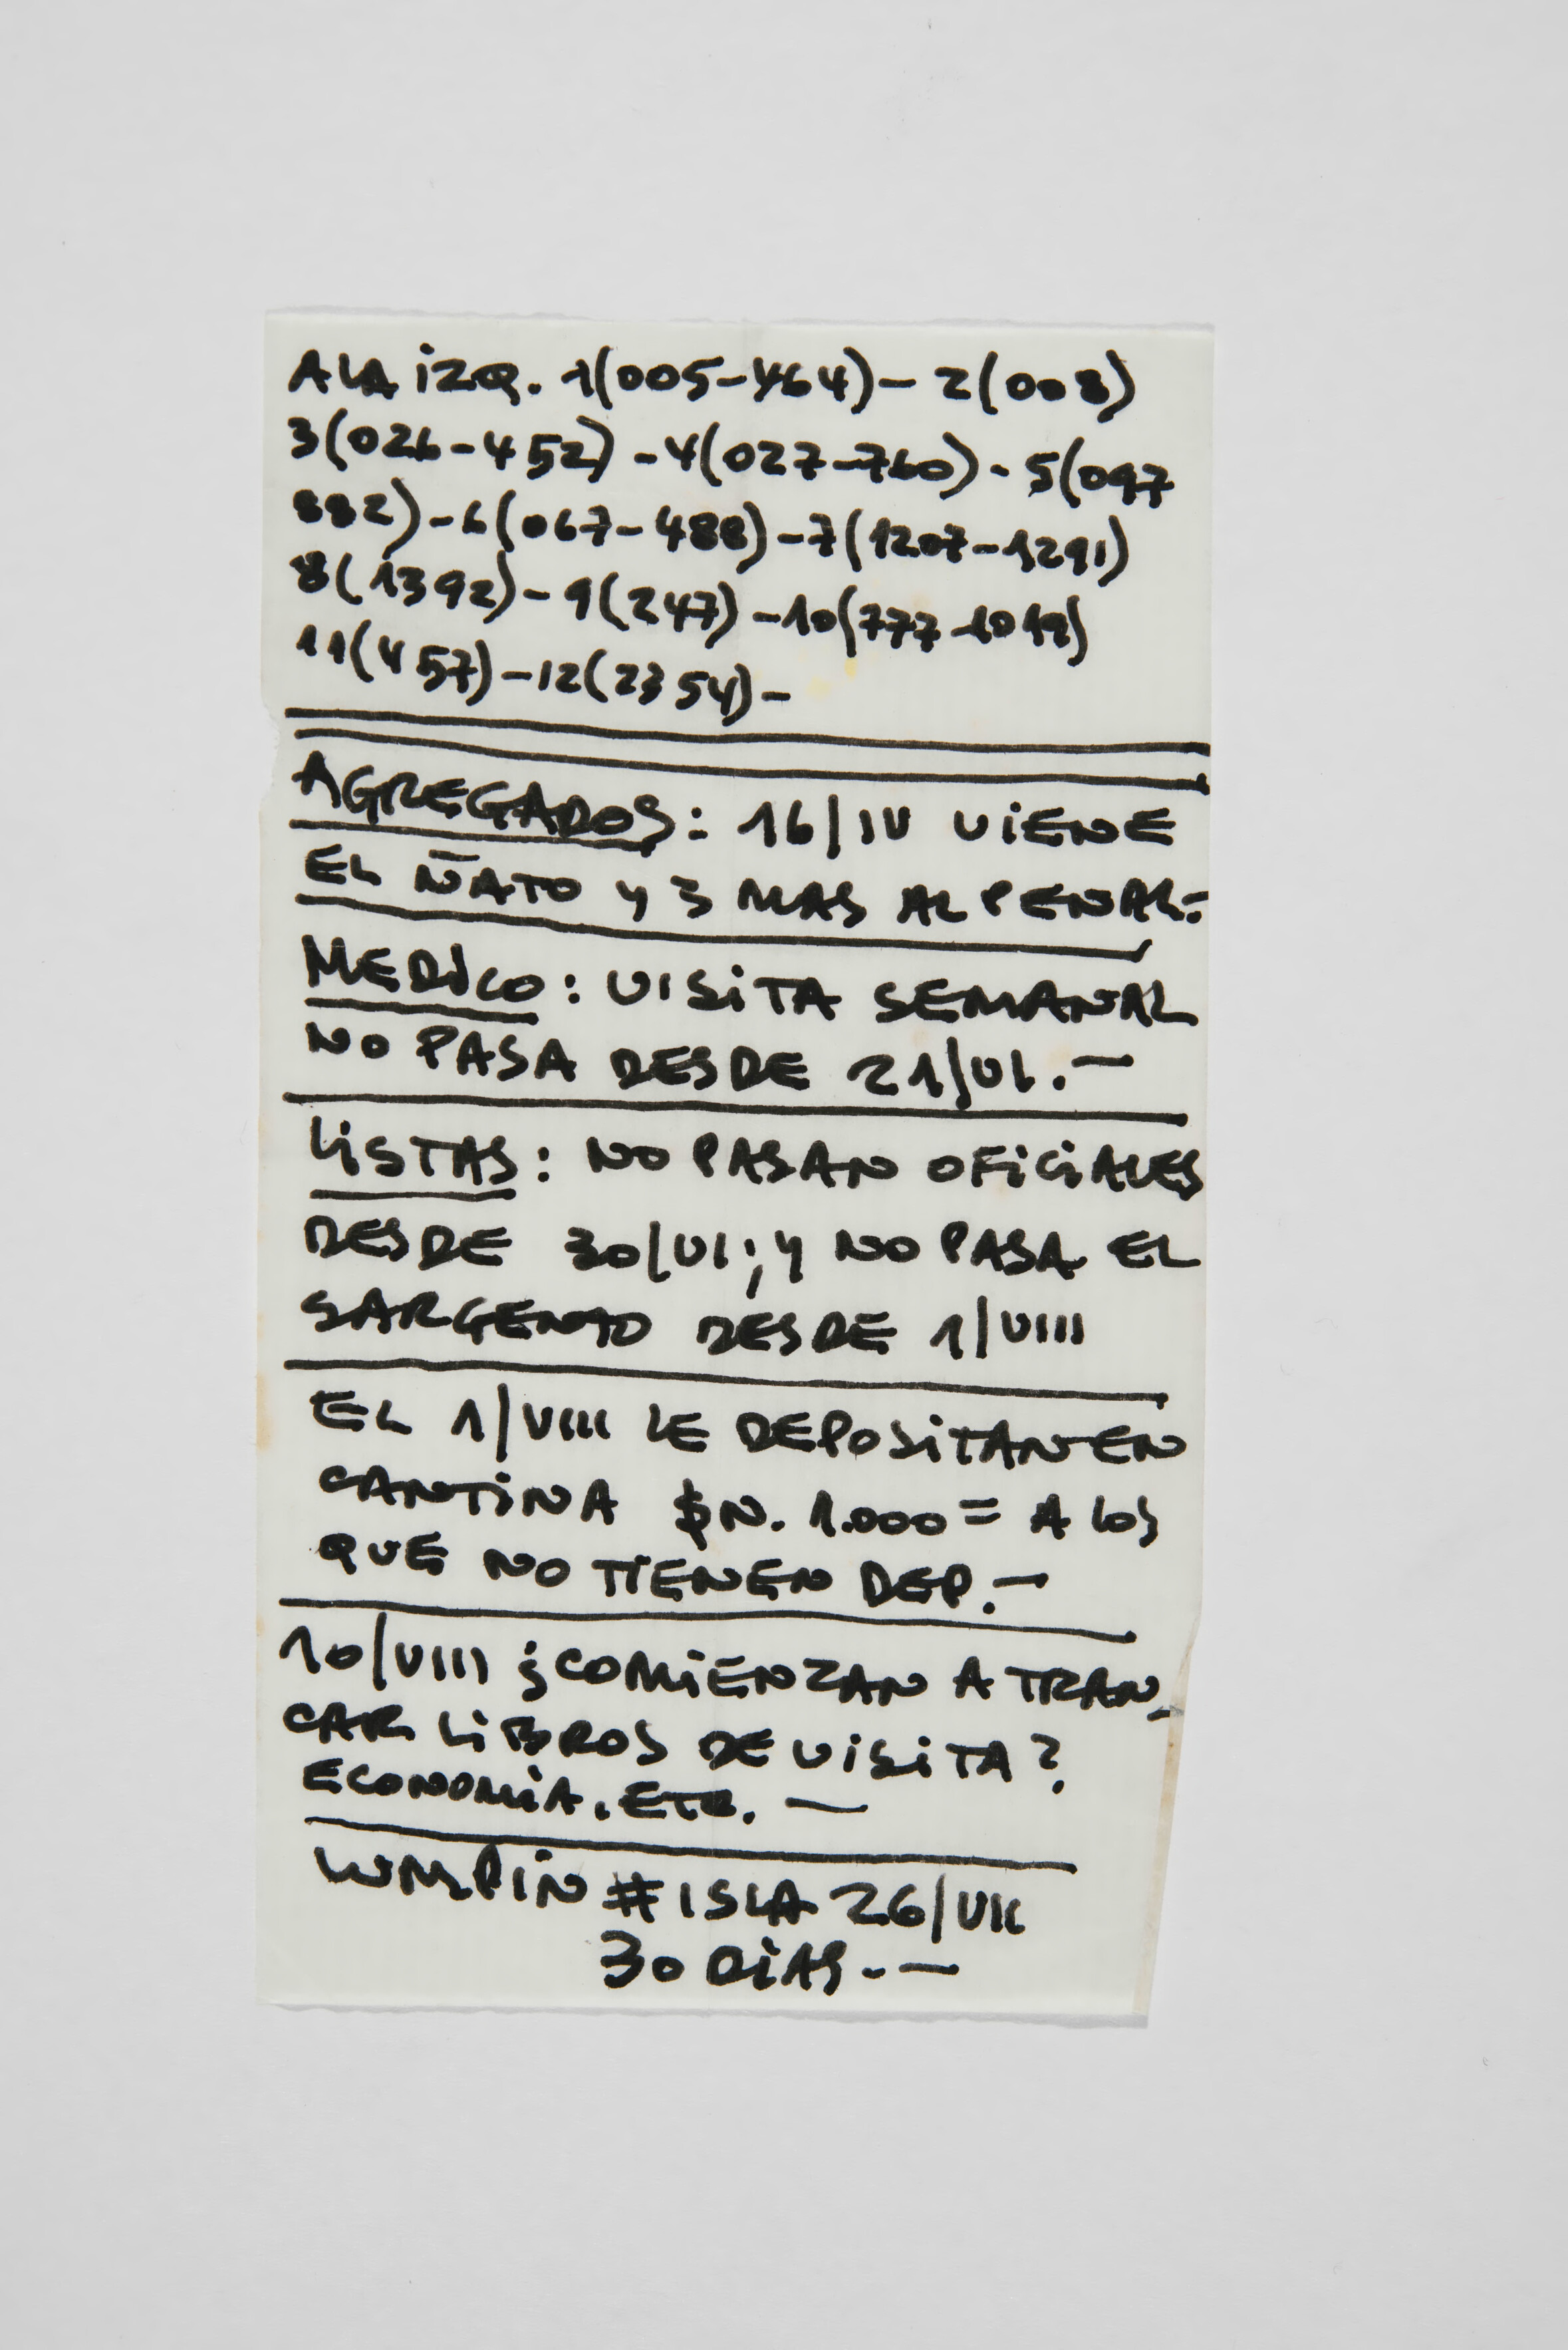 ALA IZQ. 1(005-464)- 2(008)
3(026-452)-4(027-760)-5(097
882)-6(067-488)-7(1207-1291)
8(1392)-9(247)-10(777-1019)
11(457)-12(2354)-
AGREGADOS: 16/IV VIENE
EL ÑATO Y 3 MAS AL PENAL=
MEDICO: VISITA SEMANAL
NO PASA DESDE 21/VI.—
LISTAS: NO PASAN OFICIALES
DESDE 30/VI; Y NO PASA EL
SARGENTO DESDE 1/VIII
EL 1/VIII LE DEPOSITAN EN
CANTINA $N. 1.000= A LOS
QUE NO TIENEN DEP.—
10/VIII ¿COMIENZAN A TRAN-
CAR LIBROS DE VISITA?
ECONOMIA. ETC. —
# ISLA 26/VII
30 DIAS.—